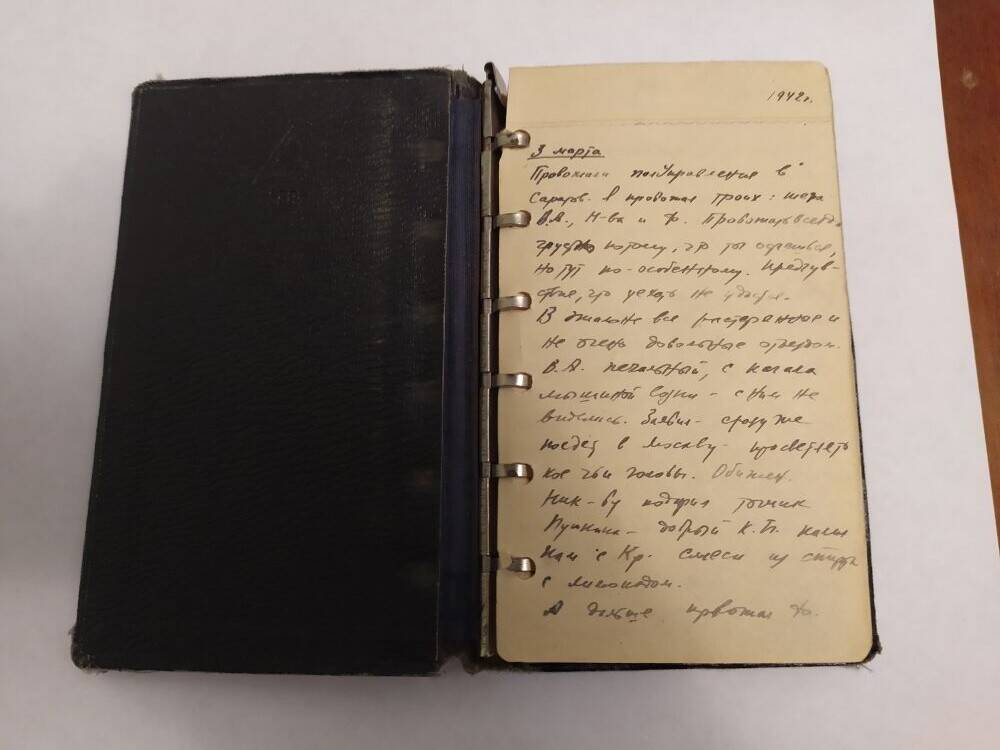 1942г.
3 марта
Провожали политуправление в
Саратов. Я провожал троих: шефа
В.А., Н-ва и Ф. Провожать всегда
грустно потому, что ты остаешься,
но тут по-особенному. Предчув-
ствие, что уехать не удастся.
В вагоне все растерянное и
не очень довольные отъездом.
В.А. печальный, с начала
мышиной возни - с ним не
виделись. Заявил - сразу же
поедет в Москву - просветлять
кое чьи головы. Обижен.
Ник-ву подарил томик
Пушкина - добрый К.П. налил
нам с Кр. смеси из спирта
с лимонадом.
А дальше провожал Ф.